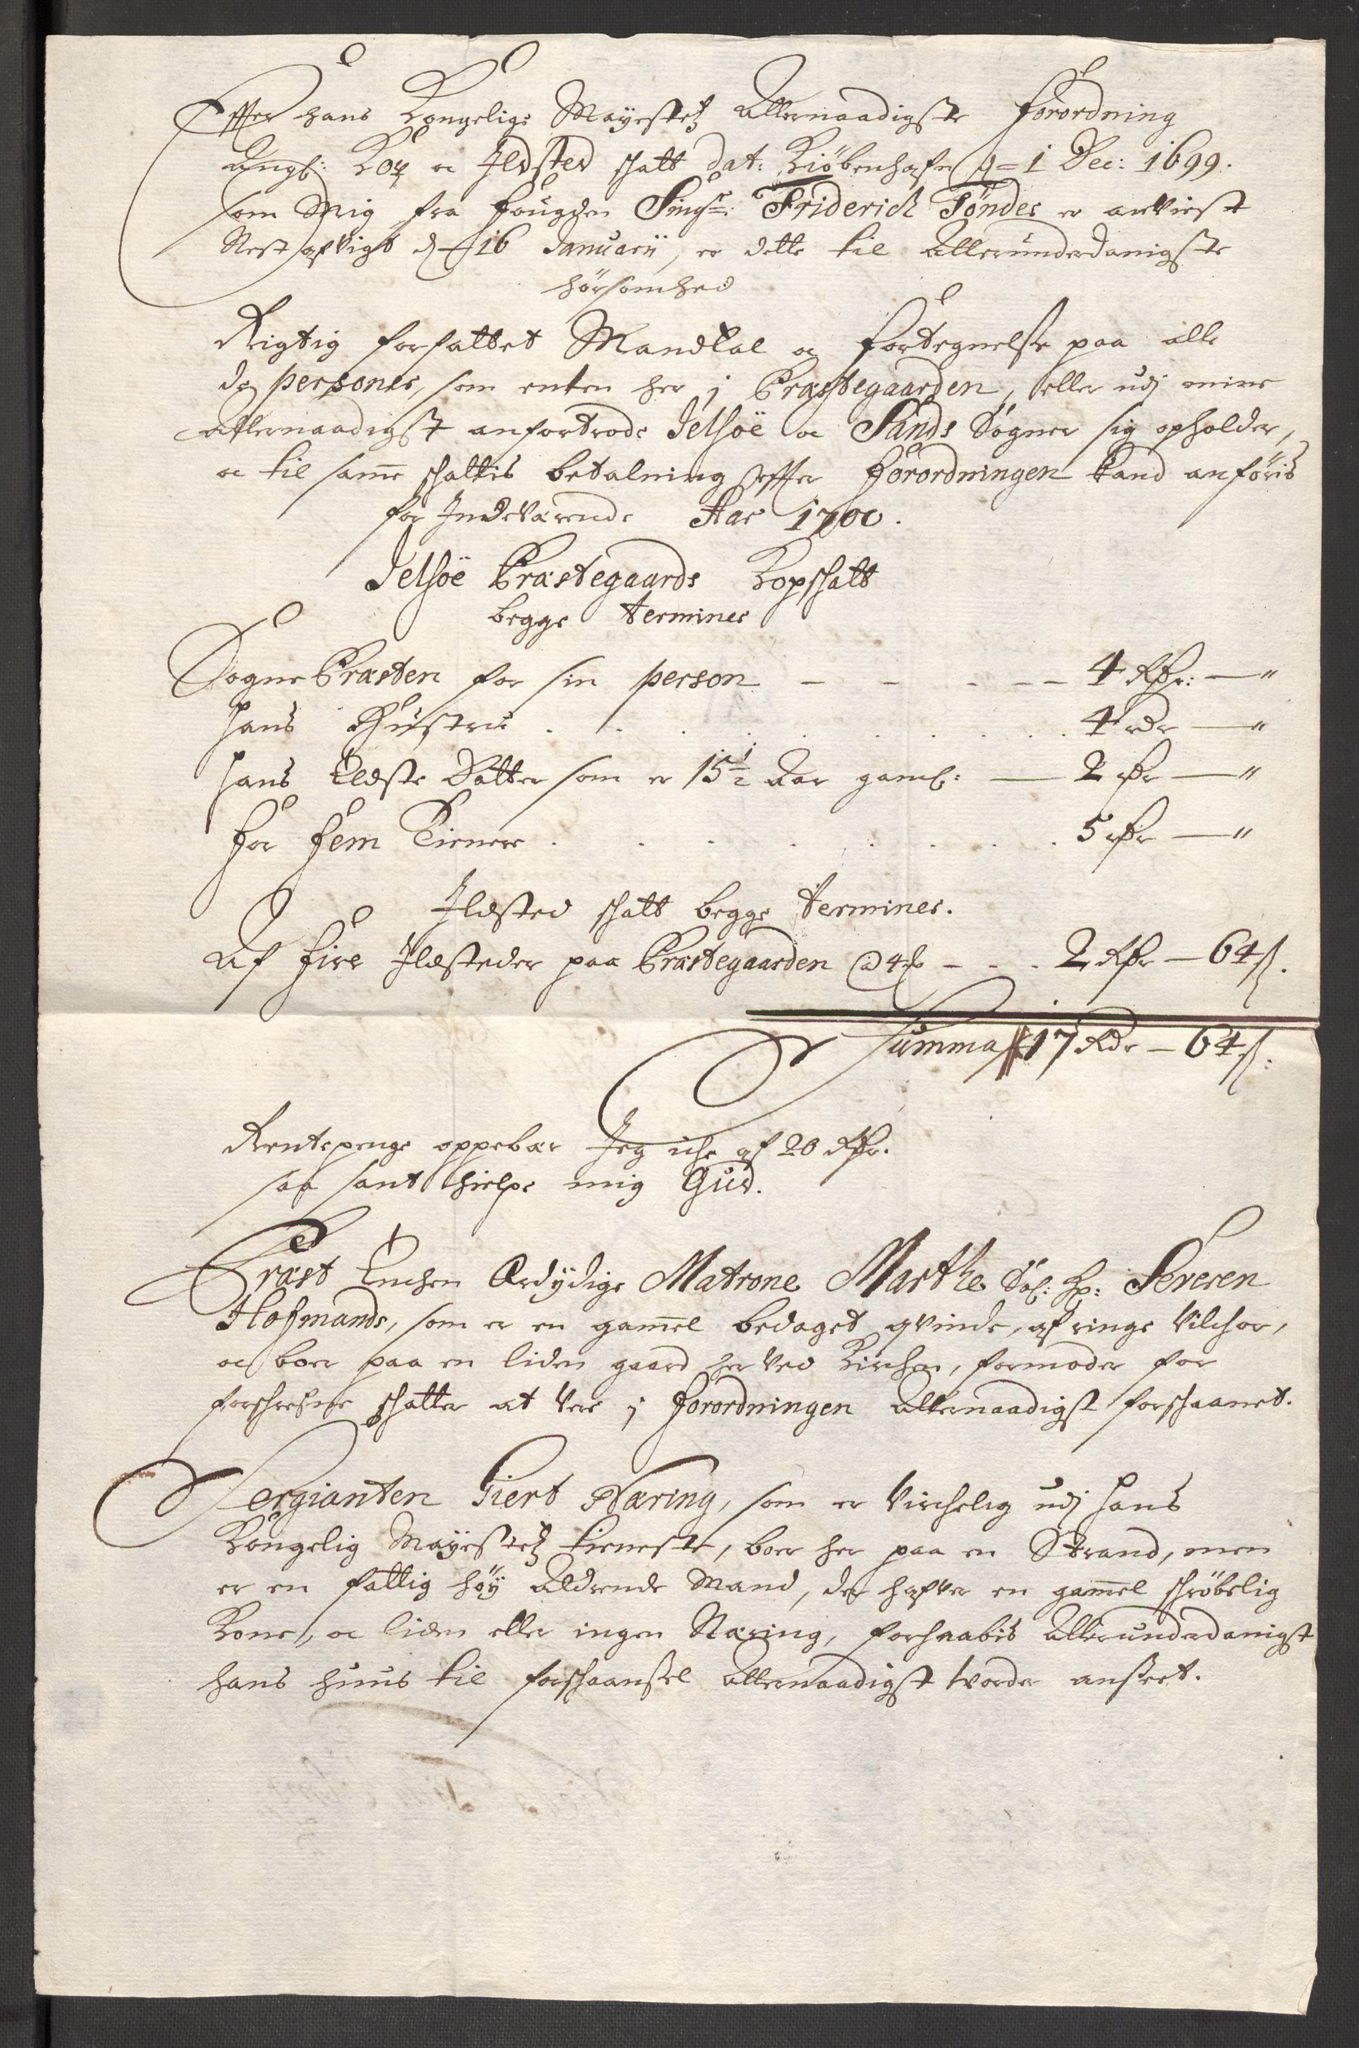 Effter hans Kongelige Mayestetz Allernaadigste forordning
Angl: Kop oc Ildsted skatt dat: Kiöbenhafn d= 1 Dec: 1699.
som Mig fra fougden Sing.r: Friderich Töndes er anviist
Nest afvigt d 16 Januarij, er dette til Allerunderdanigste
hörsomhed
Rigtig forfattet Mandtal oc fortegnelse paa alle
de persones, som enten her j Præstegaarden, eller udj mine
allernaadigst anfortrode Jelsöe oc Sands Sogner sig opholder,
oc til samme skattis betalning effter forordningen kand anföris
for Indeværende Aar 1700.
Jelsöe Præstegaards Kopskatt
begge termines
Sogne Præsten for sin person - - - - - - 4 Rdr: — "
hans Hustru . . . . . . . 4 rdr — "
hans Eldste Datter som er 15 1/2 Aar gaml: — 2 rdr — "
for fem Tienere . . . . . . . 5 rdr — "
Ildsted skatt begge termines.
Af fire Ildsteder paa Præstegaarden @ 4 - - - 2 Rdr — 64 s.
Summa 17 Rdr — 64 s:
Rentepenge oppebær Jeg iche af 20 Rdr.
saa sant hielpe mig Gud.
Præst Enchen Ærdydige Matrone Marthe Sal: Hr: Severen
Hofmands, som er en gammel bedaget qvinde, af ringe vilchor,
oc boer paa en liden gaard her ved Kirchen, formoder for
forschrefne skatter at vere j forordningen allernaadigst forschaanet.
Sergianten Giert Næring, som er virchelig udj hans
Kongelig Mayestetz tieneste, boer her paa en Strand, men
er en fattig höy Aldrende Mand, der hafver en gammel schröbelig
Kone, oc liden eller ingen Næring, forhaabis Allerunderdanigst
hans huus til forschaansel Allernaadigst vorder anseet.